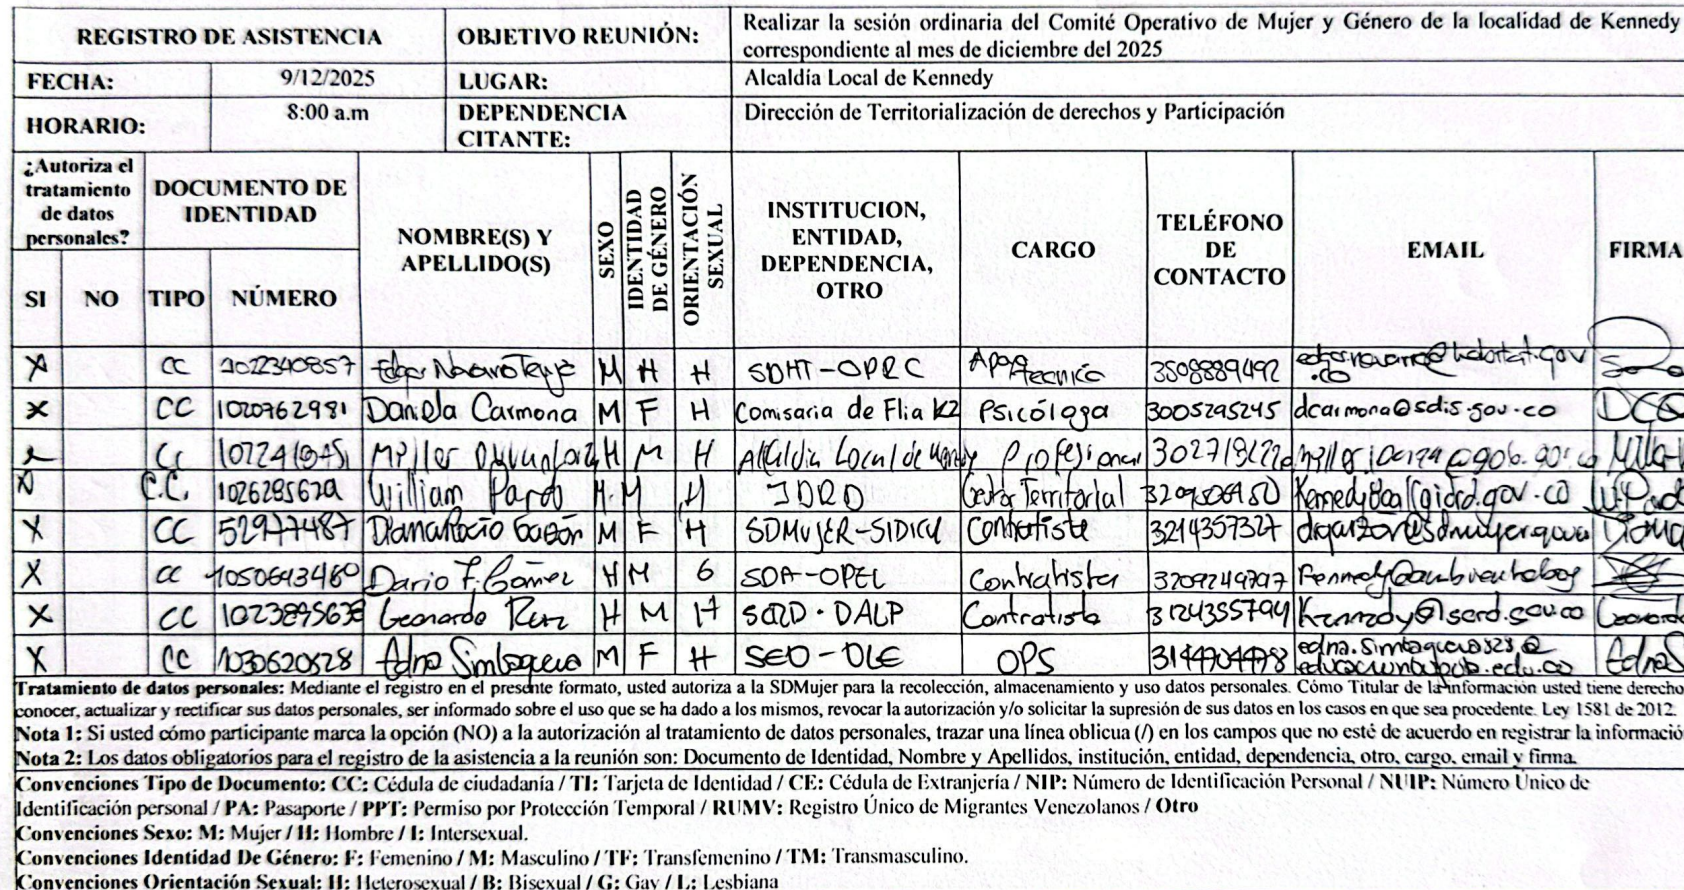 REGISTRO DE ASISTENCIA OBJETIVO REUNIÓN: Realizar la sesión ordinaria del Comité Operativo de Mujer y Género de la localidad de Kennedy
correspondiente al mes de diciembre del 2025
FECHA: 9/12/2025 LUGAR: Alcaldía Local de Kennedy
HORARIO: 8:00 a.m DEPENDENCIA CITANTE: Dirección de Territorialización de derechos y Participación
¿Autoriza el tratamiento de datos personales? DOCUMENTO DE IDENTIDAD NOMBRE(S) Y APELLIDO(S) SEXO IDENTIDAD DE GÉNERO ORIENTACIÓN SEXUAL INSTITUCION, ENTIDAD, DEPENDENCIA, OTRO CARGO TELÉFONO DE CONTACTO EMAIL FIRMA
SI NO TIPO NÚMERO
X CC 1022340857 Edgar Navarro M H H SDHT-OPRC Apoyo tecnico 3508889492
X CC 1020762981 Daniela Carmona M F H Comisaria de Flia K2 Psicóloga 3005295245 dcarmona@sdis.gov.co DCG
CC H M H Alcaldia Local de Profesional
X C.C. William Pardo H M H IDRD Gestor Territorial
X CC 52977487 Diana Rocio Garzón M F H SDMUJER-SIDICU Contratista 3214357327
X CC 1050613460 Dario F. Gómez H M G SDA-OPEL Contratista 3209249797
X CC Leonardo Ruiz H M H SCRD-DALP Contratista 3124355794 Kennedy@scrd.gov.co
X CC 1030620828 Edna Simbaqueva M F H SED-DLE OPS 3144704478
Tratamiento de datos personales: Mediante el registro en el presente formato, usted autoriza a la SDMujer para la recolección, almacenamiento y uso datos personales. Cómo Titular de la información usted tiene derecho
conocer, actualizar y rectificar sus datos personales, ser informado sobre el uso que se ha dado a los mismos, revocar la autorización y/o solicitar la supresión de sus datos en los casos en que sea procedente. Ley 1581 de 2012.
Nota 1: Si usted cómo participante marca la opción (NO) a la autorización al tratamiento de datos personales, trazar una línea oblicua (/) en los campos que no esté de acuerdo en registrar la informació
Nota 2: Los datos obligatorios para el registro de la asistencia a la reunión son: Documento de Identidad, Nombre y Apellidos, institución, entidad, dependencia, otro, cargo, email y firma.
Convenciones Tipo de Documento: CC: Cédula de ciudadanía / TI: Tarjeta de Identidad / CE: Cédula de Extranjería / NIP: Número de Identificación Personal / NUIP: Número Único de
Identificación personal / PA: Pasaporte / PPT: Permiso por Protección Temporal / RUMV: Registro Único de Migrantes Venezolanos / Otro
Convenciones Sexo: M: Mujer / H: Hombre / I: Intersexual.
Convenciones Identidad De Género: F: Femenino / M: Masculino / TF: Transfemenino / TM: Transmasculino.
Convenciones Orientación Sexual: H: Heterosexual / B: Bisexual / G: Gay / L: Lesbiana